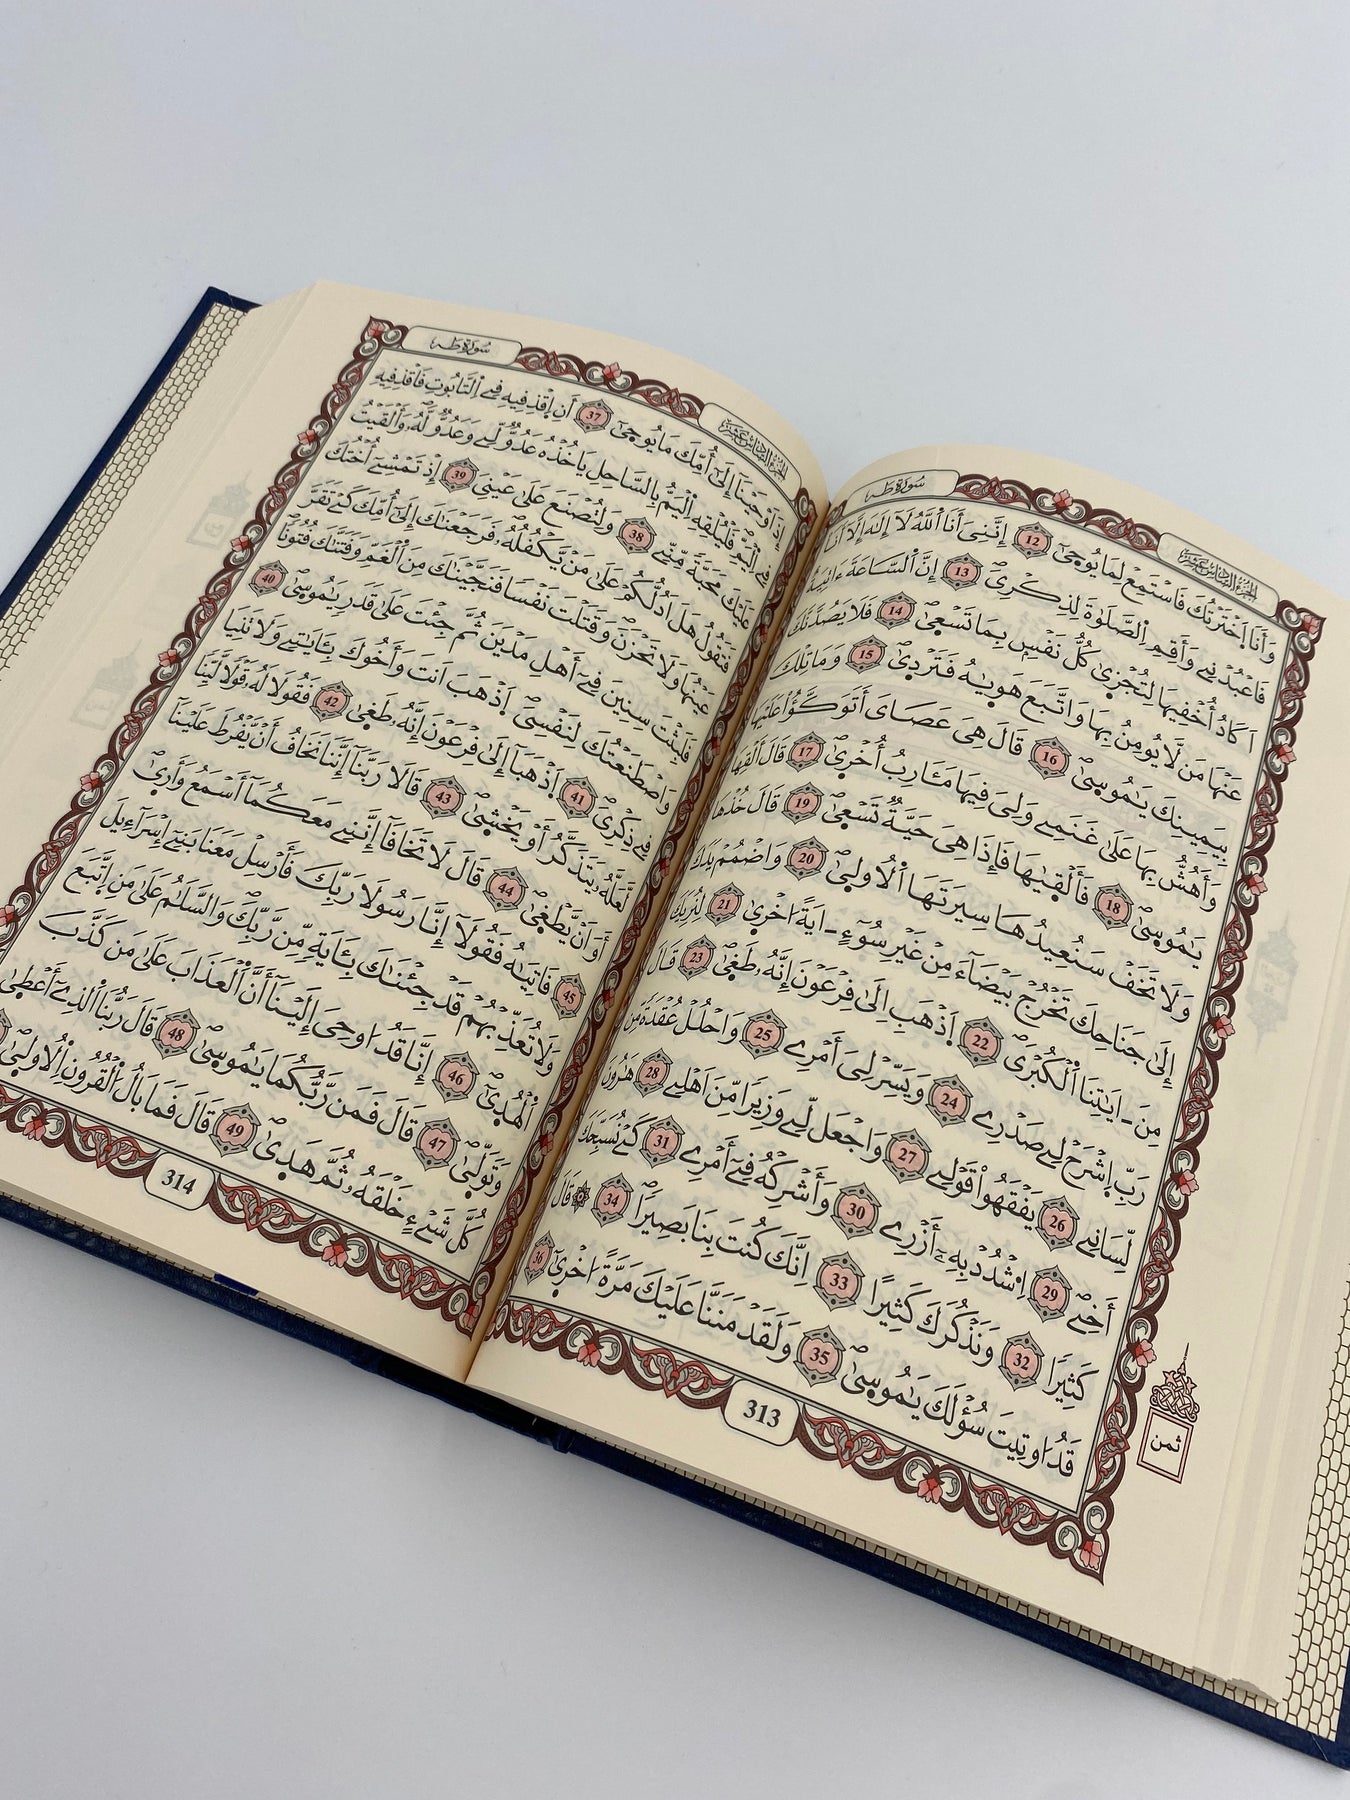 سورة طه
الجزء السادس عشر
وَأَنَا اَخْتَرْتُكَ فَاسْتَمِعْ لِمَا يُوحَىٰ 12 إِنَّنِيَ أَنَا اَللَّهُ لَا إِلَٰهَ إِلَّا أَنَا
فَاعْبُدْنِے وَأَقِمِ اِلصَّلَوٰةَ لِذِكْرِيَ 13 إِنَّ اَلسَّاعَةَ ءَاتِيَةٌ
اَكَادُ أُخْفِيهَا لِتُجْزَىٰ كُلُّ نَفْسِۢ بِمَا تَسْعَىٰ 14 فَلَا يَصُدَّنَّكَ
عَنْهَا مَن لَّا يُومِنُ بِهَا وَاتَّبَعَ هَوَيٰهُ فَتَرْدَىٰ 15 وَمَا تِلْكَ
بِيَمِينِكَ يَٰمُوسَىٰ 16 قَالَ هِيَ عَصَايَ أَتَوَكَّؤُاْ عَلَيْهَا
وَأَهُشُّ بِهَا عَلَىٰ غَنَمِے وَلِيَ فِيهَا مَـَٔارِبُ أُخْرَىٰ 17 قَالَ أَلْقِهَا
يَٰمُوسَىٰ 18 فَأَلْقَيٰهَا فَإِذَا هِيَ حَيَّةٌ تَسْعَىٰ 19 قَالَ خُذْهَا
وَلَا تَخَفْ سَنُعِيدُهَا سِيرَتَهَا اَلُاولَىٰ 20 وَاضْمُمْ يَدَكَ
إِلَىٰ جَنَاحِكَ تَخْرُجْ بَيْضَآءَ مِنْ غَيْرِ سُوٓءٍ ـ ايَةً اُخْرَىٰ 21 لِنُرِيَكَ
مِنَ ـ ايَٰتِنَا اَلْكُبْرَى 22 اَذْهَبِ اِلَىٰ فِرْعَوْنَ إِنَّهُۥ طَغَىٰ 23 قَالَ
رَبِّ اِشْرَحْ لِے صَدْرِے 24 وَيَسِّرْ لِيَ أَمْرِے 25 وَاحْلُلْ عُقْدَةً مِّن
لِّسَانِے 26 يَفْقَهُواْ قَوْلِے 27 وَاجْعَل لِّے وَزِيراً مِّنَ اَهْلِے 28 هَٰرُونَ
أَخِے 29 اِشْدُدْ بِهِۦٓ أَزْرِے 30 وَأَشْرِكْهُ فِےٓ أَمْرِے 31 كَےْ نُسَبِّحَكَ
كَثِيراً 32 وَنَذْكُرَكَ كَثِيراً 33 اِنَّكَ كُنتَ بِنَا بَصِيراً 34 قَالَ
قَدُ اوتِيتَ سُؤْلَكَ يَٰمُوسَىٰ 35 وَلَقَدْ مَنَنَّا عَلَيْكَ مَرَّةً اُخْرَىٰ 36
ثمن
313
سورة طه
الجزء السادس عشر
إِذَ اَوْحَيْنَا إِلَىٰ أُمِّكَ مَا يُوحَىٰ 37 أَنِ اِقْذِفِيهِ فِے اِلتَّابُوتِ فَاقْذِفِيهِ
فِے اِلْيَمِّ فَلْيُلْقِهِ اِلْيَمُّ بِالسَّاحِلِ يَاخُذْهُ عَدُوٌّ لِّے وَعَدُوٌّ لَّهُۥ وَأَلْقَيْتُ
عَلَيْكَ مَحَبَّةً مِّنِّے 38 وَلِتُصْنَعَ عَلَىٰ عَيْنِيَ 39 إِذْ تَمْشِےٓ أُخْتُكَ
فَتَقُولُ هَلَ اَدُلُّكُمْ عَلَىٰ مَنْ يَّكْفُلُهُۥ فَرَجَعْنَٰكَ إِلَىٰٓ أُمِّكَ كَےْ تَقَرَّ
عَيْنُهَا وَلَا تَحْزَنَ وَقَتَلْتَ نَفْساً فَنَجَّيْنَٰكَ مِنَ اَلْغَمِّ وَفَتَنَّٰكَ فُتُوناً
فَلَبِثْتَ سِنِينَ فِےٓ أَهْلِ مَدْيَنَ ثُمَّ جِئْتَ عَلَىٰ قَدَرٍ يَٰمُوسَىٰ 40
وَاصْطَنَعْتُكَ لِنَفْسِيَ اَذْهَبَ اَنتَ وَأَخُوكَ بِـَٔايَٰتِے وَلَا تَنِيَا
فِے ذِكْرِيَ 41 اَذْهَبَا إِلَىٰ فِرْعَوْنَ إِنَّهُۥ طَغَىٰ 42 فَقُولَا لَهُۥ قَوْلاً لَّيِّناً
لَّعَلَّهُۥ يَتَذَكَّرُ أَوْ يَخْشَىٰ 43 قَالَا رَبَّنَا إِنَّنَا نَخَافُ أَنْ يَّفْرُطَ عَلَيْنَا
أَوَ اَنْ يَّطْغَىٰ 44 قَالَ لَا تَخَافَا إِنَّنِے مَعَكُمَا أَسْمَعُ وَأَرَىٰ
45 فَاتِيَٰهُ فَقُولَا إِنَّا رَسُولَا رَبِّكَ فَأَرْسِلْ مَعَنَا بَنِےٓ إِسْرَآءِيلَ
وَلَا تُعَذِّبْهُمْ قَدْ جِئْنَٰكَ بِـَٔايَةٍ مِّن رَّبِّكَ وَالسَّلَٰمُ عَلَىٰ مَنِ اِتَّبَعَ
اَلْهُدَىٰ 46 إِنَّا قَدُ اوحِيَ إِلَيْنَا أَنَّ اَلْعَذَابَ عَلَىٰ مَن كَذَّبَ
وَتَوَلَّىٰ 47 قَالَ فَمَن رَّبُّكُمَا يَٰمُوسَىٰ 48 قَالَ رَبُّنَا اَلذِےٓ أَعْطَىٰ
كُلَّ شَےْءٍ خَلْقَهُۥ ثُمَّ هَدَىٰ 49 قَالَ فَمَا بَالُ اُلْقُرُونِ اِلُاولَىٰ
314